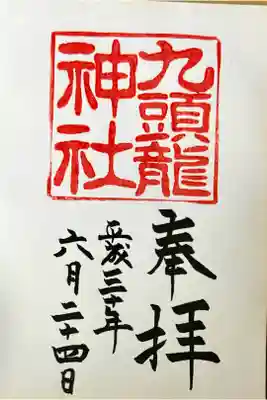 九頭龍
神社
奉拝
平成三十年
六月二十四日